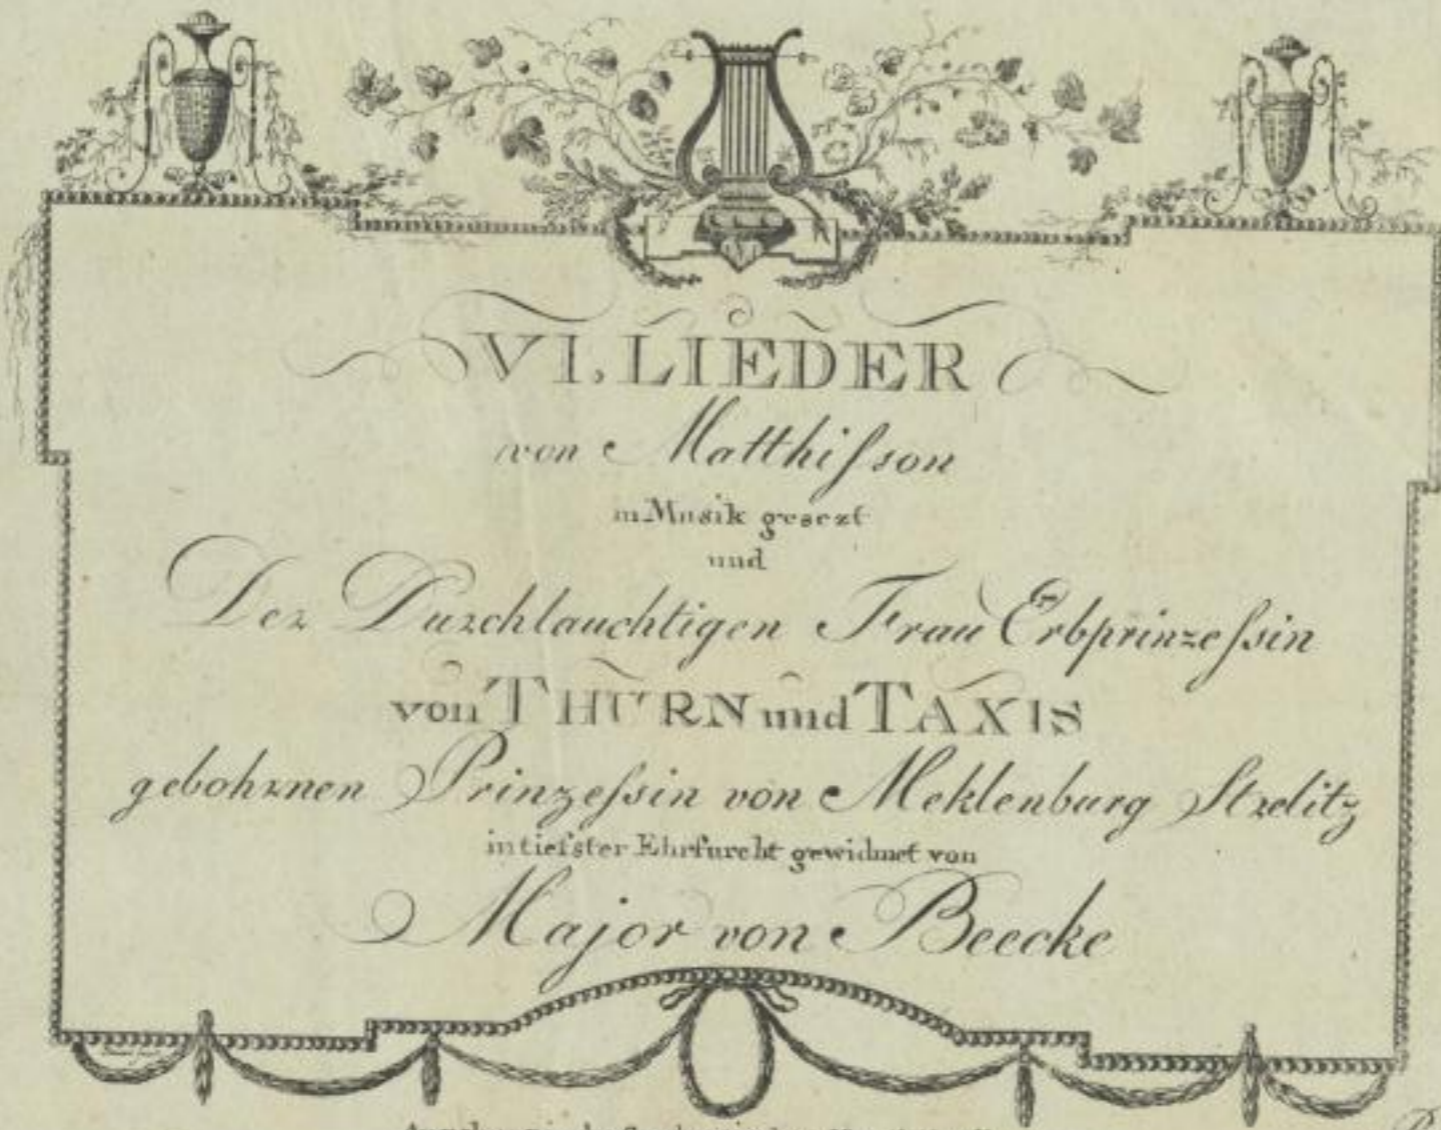 VI. LIEDER
von Matthiſson
in Musik gesezt
und
Der Durchlauchtigen Frau Erbprinzeſsin
von THURN und TAXIS
gebohrnen Prinzeſsin von Meklenburg Strelitz
in tiefster Ehrfurcht gewidmet von
Major von Beecke